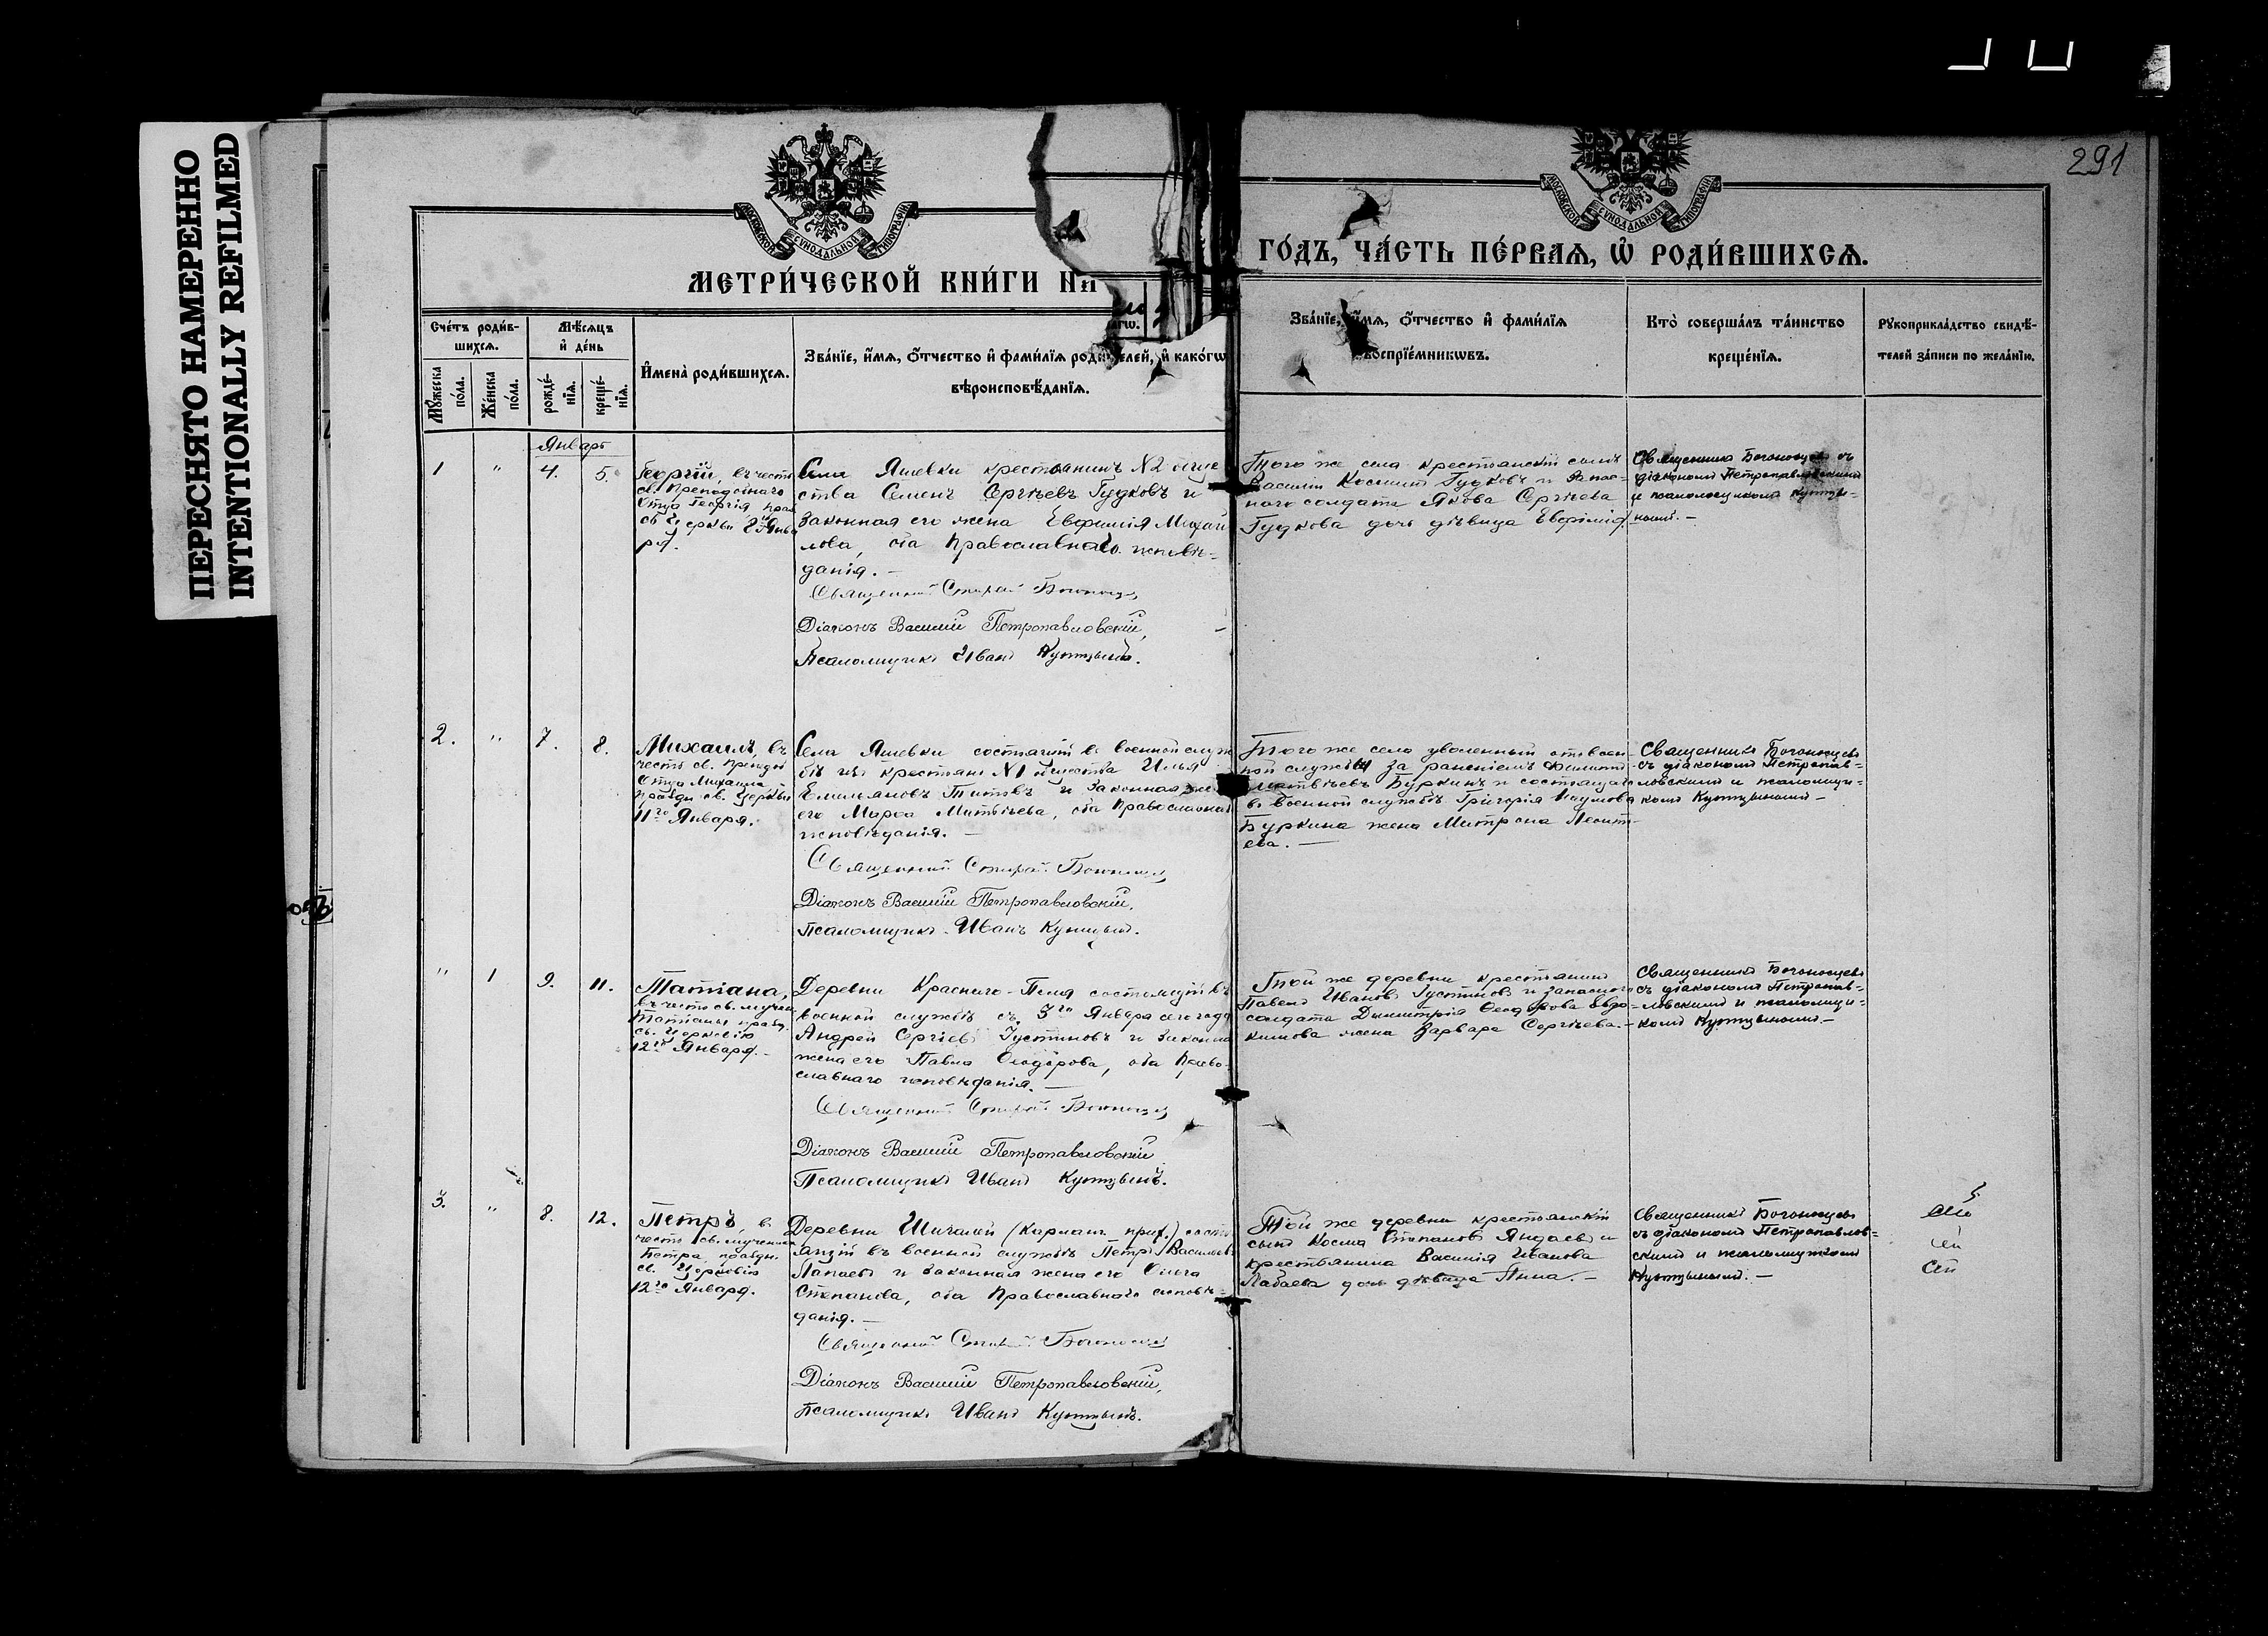 ПЕРЕСНЯТО НАМЕРЕННО
INTENTIONALLY REFILMED
291
МОСКОВСКОЙ СѴНОДАЛЬНОЙ ТИПОГРАФІИ
МОСКОВСКОЙ СѴНОДАЛЬНОЙ ТИПОГРАФІИ
МЕТРИ́ЧЕСКОЙ КНИ́ГИ НА
ГО́ДЪ, ЧА́СТЬ ПЕ́РВАЯ, Ѡ҆ РОДИ́ВШИХСЯ.
Сче́тъ роди́в-
шихся.
Мѣ́сяцъ
и҆ де́нь
Мꙋ́жеска по́ла.
Же́нска по́ла.
рожде́-
нїя.
креще́-
нїя.
И҆мена̀ роди́вшихся.
Зва́нїе, и҆́мя, ѻ҆́тчество и҆ фами́лїя роди́телей, и҆ како́гѡ
вѣроисповѣ́данїя.
Зва́нїе, и҆́мя, ѻ҆́тчество и҆ фами́лїя
воспрїе́мникѡвъ.
Кто̀ соверша́лъ та́инство
креще́нїя.
Рꙋкоприкла́дство свидѣ́-
телей за́писи по жела́нїю.
Январь
1
"
4.
5.
Георгій, въ честь
св. Преподобнаго
Отца Георгія праз
св. Церкви 8го Янва
ря.
Села Яшевки крестьянинъ №2 обще
ства Семенъ Сергѣевъ Гудковъ и
законная его жена Евфимія Михай
лова, оба Православнаго исповѣ-
данія. —
Священникъ Богоносцевъ
Діаконъ Василій Петропавловскій,
Псаломщикъ Иванъ Купцынъ.
Того же села крестьянскій сынъ
Василій Косминъ Гудковъ и запас-
наго солдата Якова Сергѣева
Гудкова дочь дѣвица Евфимія
Священникъ Богоносцевъ съ
діакономъ Петропавловскимъ
и псаломщикомъ Купцы-
нымъ. —
2.
"
7.
8.
Михаилъ, въ
честь св. Преподоб
Отца Михаила
праздн. св. Церковью
11го Января.
Села Яшевки состоящій въ военной служ
бѣ изъ крестьянъ №1 общества Илья
Емельяновъ Титовъ и законная жена
его Марѳа Матвѣева, оба Православнаго
исповѣданія. —
Священникъ Богоносцевъ
Діаконъ Василій Петропавловскій,
Псаломщикъ Иванъ Купцынъ.
Того же села уволенный отъ воен-
ной службы за раненіемъ Филиппъ
Матвѣевъ Буркинъ и состоящаго
въ военной службѣ Григорія Наумова
Буркина жена Матрона Леонть-
ева. —
Священникъ Богоносцевъ
съ діакономъ Петропав-
ловскимъ и псаломщи-
комъ Купцынымъ —
"
1
9.
11.
Татіана,
въ честь св. мучен.
Татіаны праздн.
св. Церковію
12го Января. —
Деревни Краснаго-Поля состоящій въ
военной службѣ съ 3го Января сего года
Андрей Сергѣевъ Густиновъ и законная
жена его Павла Ѳеодорова, оба Право-
славнаго исповѣданія. —
Священникъ Богоносцевъ
Діаконъ Василій Петропавловскій
Псаломщикъ Иванъ Купцынъ.
Той же деревни крестьянинъ
Павелъ Ивановъ Густиновъ и запаснаго
солдата Димитрія Ѳеодорова Евдо-
кимова жена Варвара Сергѣева. —
Священникъ Богоносцевъ
съ діакономъ Петропав-
ловскимъ и псаломщи-
комъ Купцынымъ —
3.
"
8.
12.
Петръ, въ
честь св. мученика
Петра, праздн.
св. Церковію
12го Января.
Деревни Шигалей (Кармал. прих.) состо
ящій въ военной службѣ Петръ Васильевъ
Лапаевъ и законная жена его Ольга
Степанова, оба Православнаго исповѣ-
данія. —
Священникъ Богоносцевъ
Діаконъ Василій Петропавловскій,
Псаломщикъ Иванъ Купцынъ.
Той же деревни крестьянскій
сынъ Косма Степановъ Яндаевъ и
крестьянина Василія Иванова
Лабаева дочь дѣвица Анна. —
Священникъ Богоносцевъ
съ діакономъ Петропавлов-
скимъ и псаломщикомъ
Купцынымъ. —